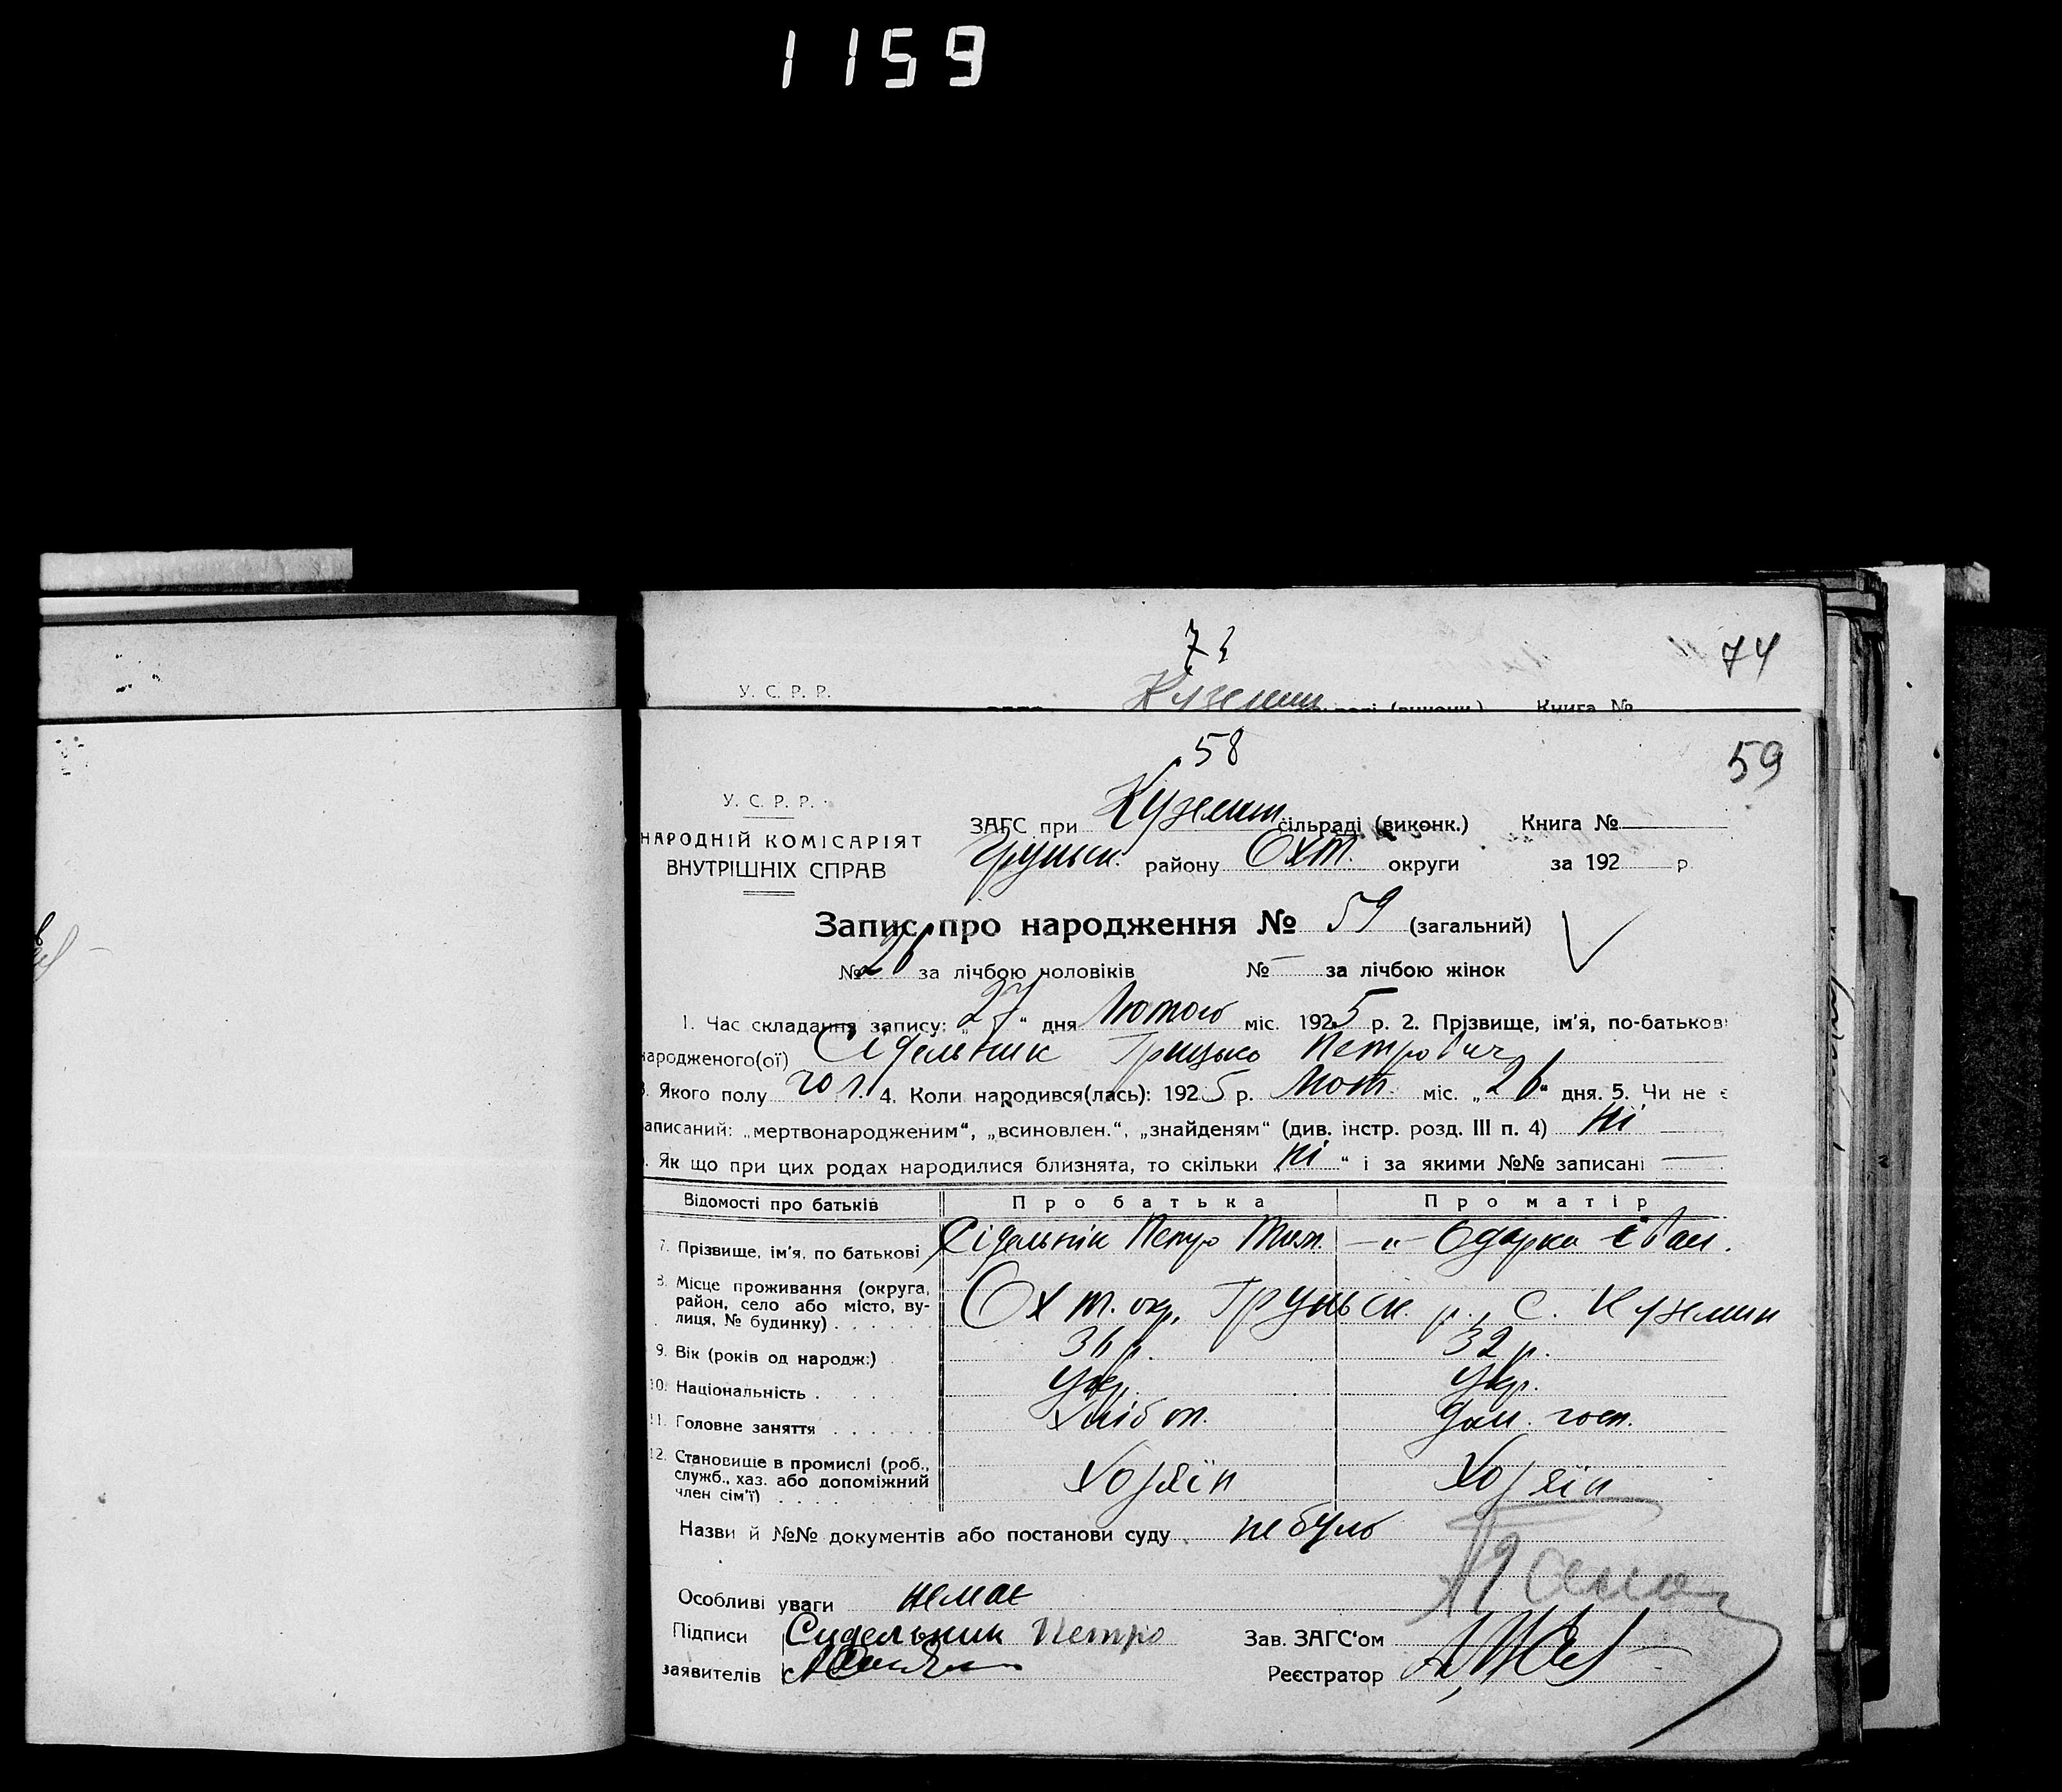 1159
73
74
У. С. Р. Р.
Куземин
Книга №
58
59
У. С. Р. Р.
НАРОДНІЙ КОМІСАРІЯТ
ВНУТРІШНІХ СПРАВ
ЗАГС при Куземин сільраді (виконк.) Книга №
Груньск. району Охт. округи за 192 р.
Запис про народження № 59 (загальний)
№ 26 за лічбою чоловіків № — за лічбою жінок
1. Час складання запису: „27“ дня Лютого міс. 1925 р. 2. Прізвище, ім'я, по-батькові
народженого(ої) Сідельник Грицько Петрович
3. Якого полу чол. 4. Коли народився(лась): 1925 р. Лют. міс. „26“ дня. 5. Чи не є
записаний: „мертвонародженим“, „всиновлен.“, „знайденям“ (див. інстр. розд. III п. 4) ні
Як що при цих родах народилися близнята, то скільки „ні“ і за якими №№ записані —
Відомості про батьків Про батька Про матір
7. Прізвище, ім'я, по батькові Сідельнік Петро Тим. —„— Одарка Іван.
8. Місце проживання (округа, район, село або місто, ву-
лиця, № будинку) Охт. окр. Груньск. р., с. Куземин
9. Вік (років од народж:) 36 р. 32 р.
10. Національність Укр. Укр.
11. Головне заняття Хлібоп. Дом. госп.
12. Становище в промислі (роб., служб., хаз. або допоміжний
член сім'ї) Хозяїн Хозяїн
Назви й №№ документів або постанови суду не було
Особливі уваги немає
Підписи Сидельник Петро Зав. ЗАГС'ом
заявителів Реєстратор